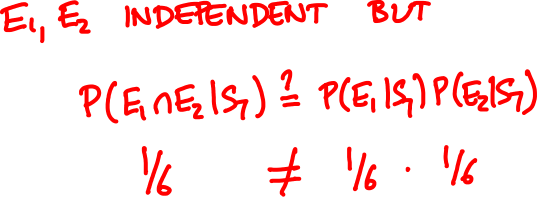 E₁, E₂ INDEPENDENT BUT
P(E₁∩E₂|S₇) ≟ P(E₁|S₇)P(E₂|S₇)
1/6 ≠ 1/6 · 1/6